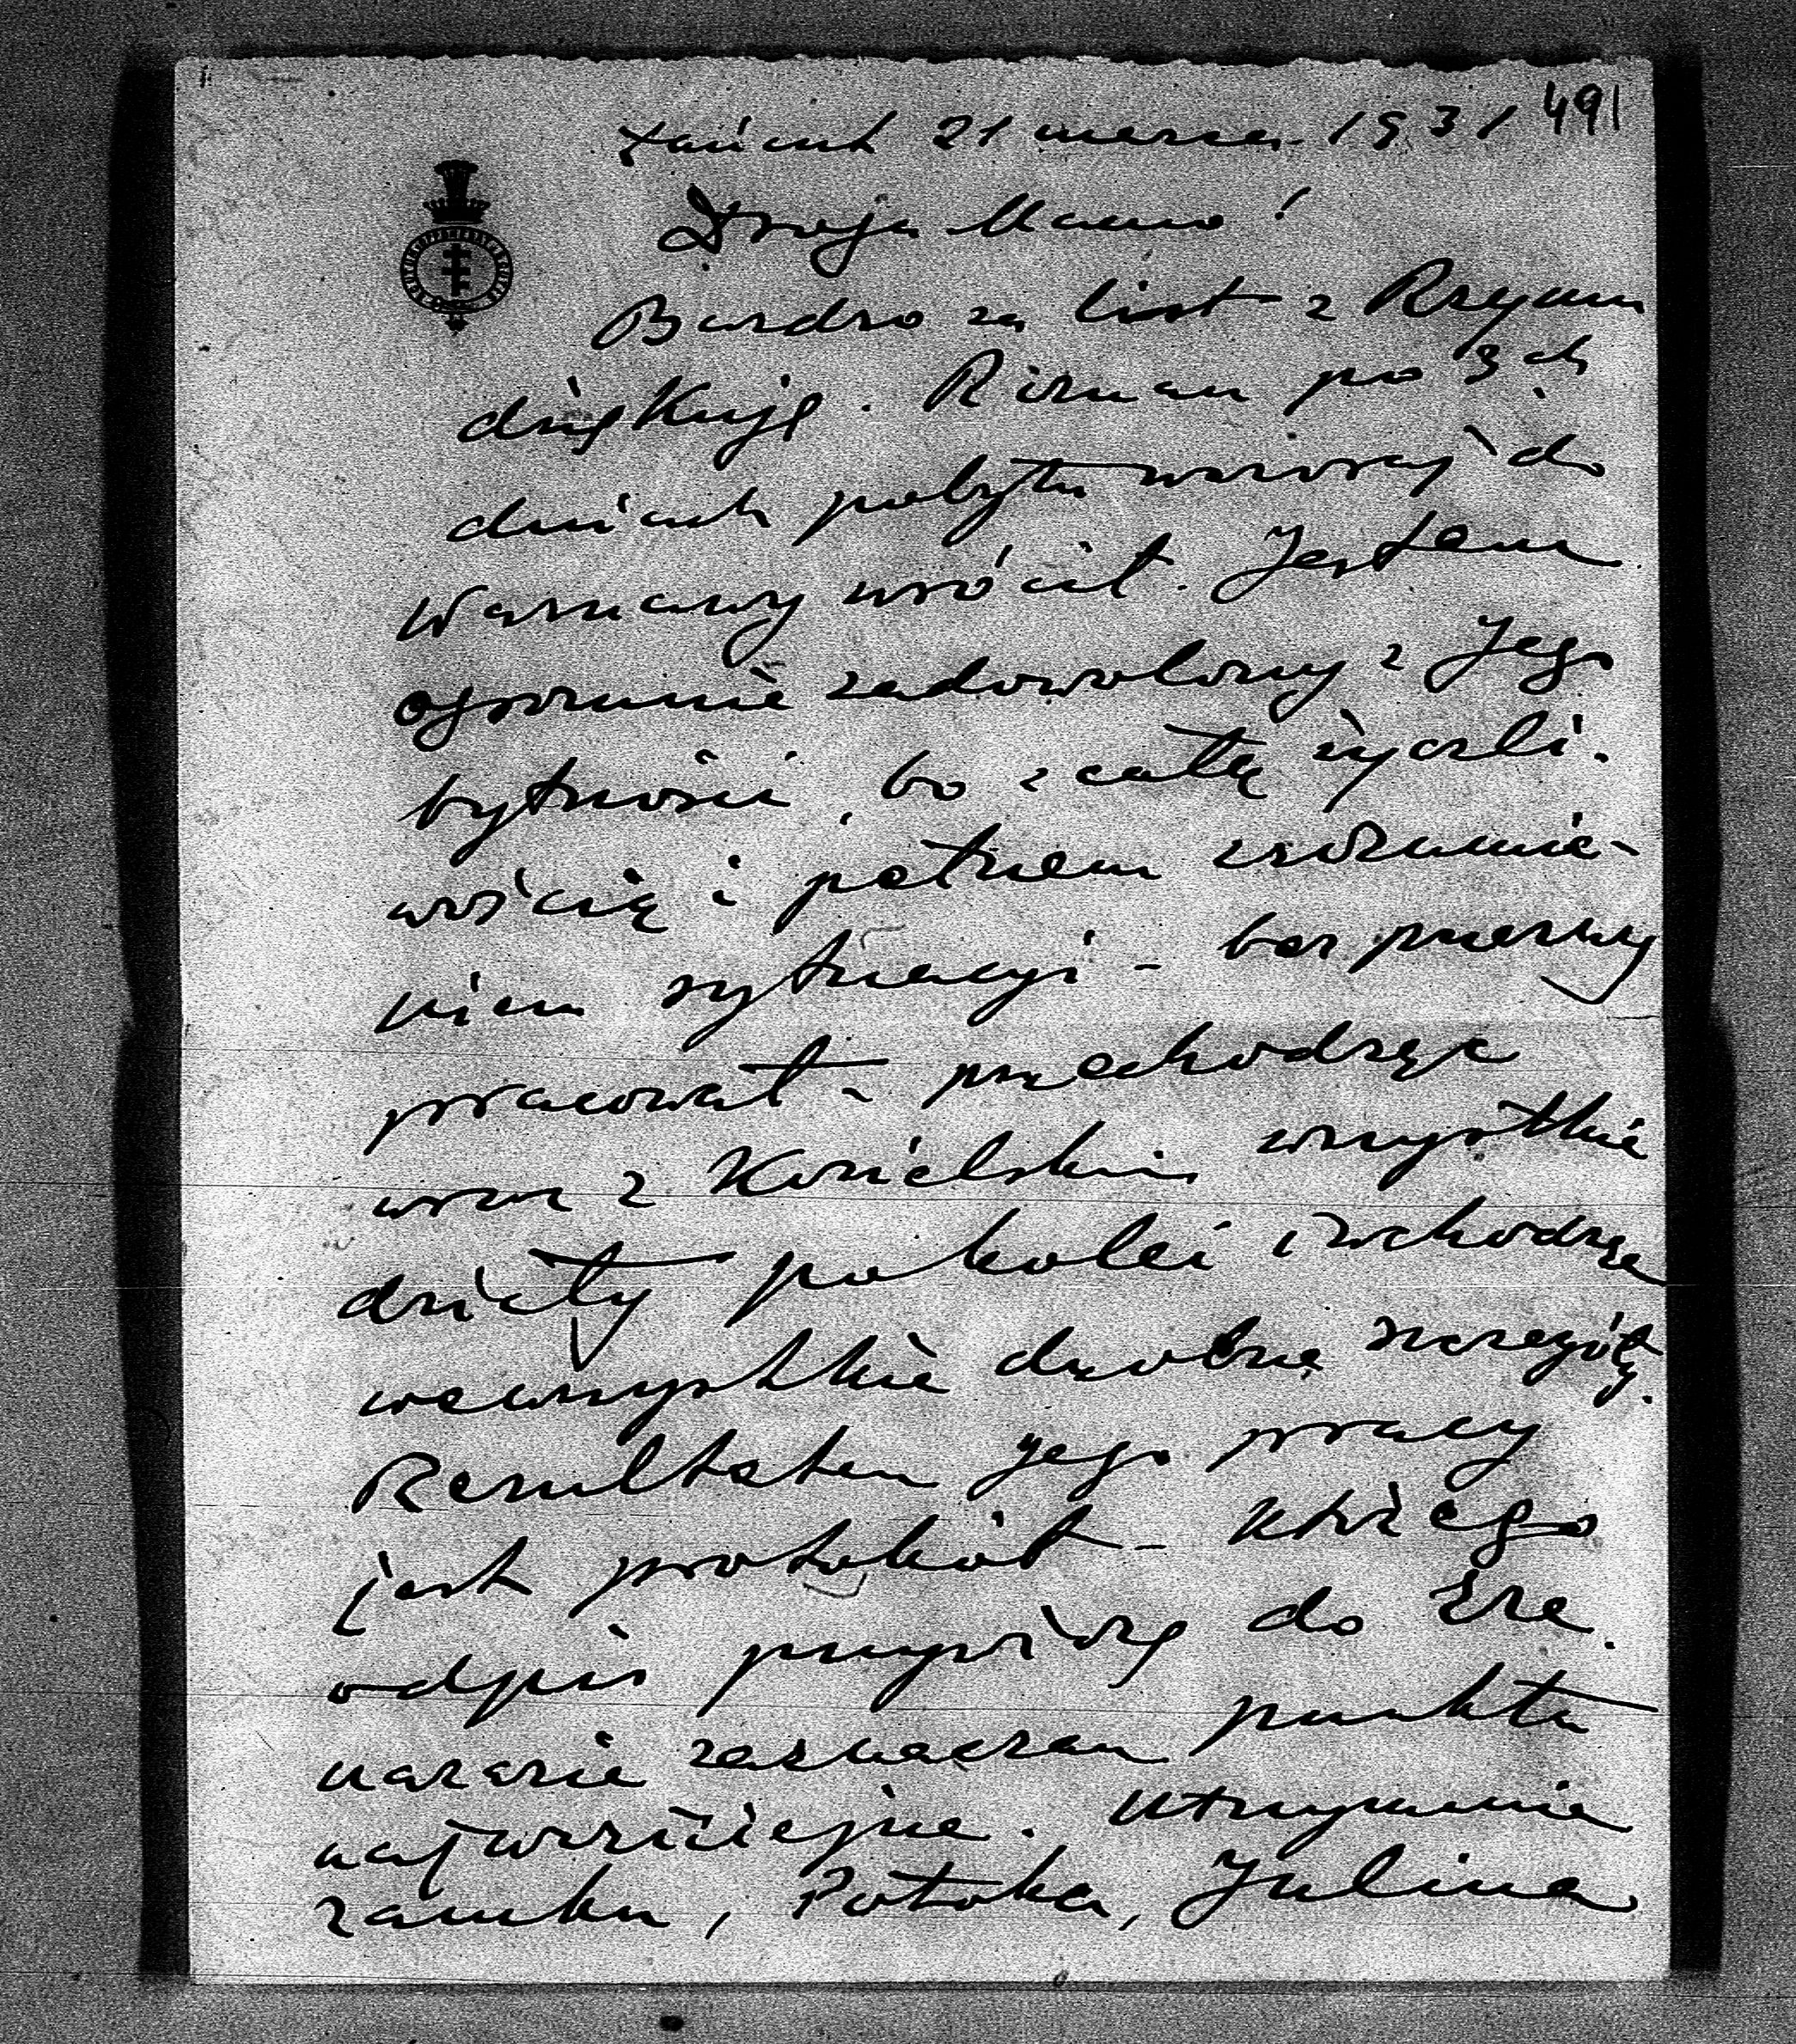 491
Łańcut 21 marca 1931
Droga Mamo!
Bardzo za list z Rzymu
dziękuję. Rizman po 3ch
dniach pobytu wczoraj do
Warszawy wrócił. Jestem
ogromnie zadowolony z Jego
bytności, bo z całą życzli-
wością i pełnem zrozumie-
niem sytuacyi - bez przerwy
pracował - przechodząc
wraz z Kozielskim wszystkie
działy po kolei i wchodząc
we wszystkie drobne szczegóły.
Rezultatem jego pracy
jest protokół - którego
odpis przywiozę do Ż
narazie zaznaczam punkta
najważniejsze. Utrzymanie
zamku, Potoka, Julina